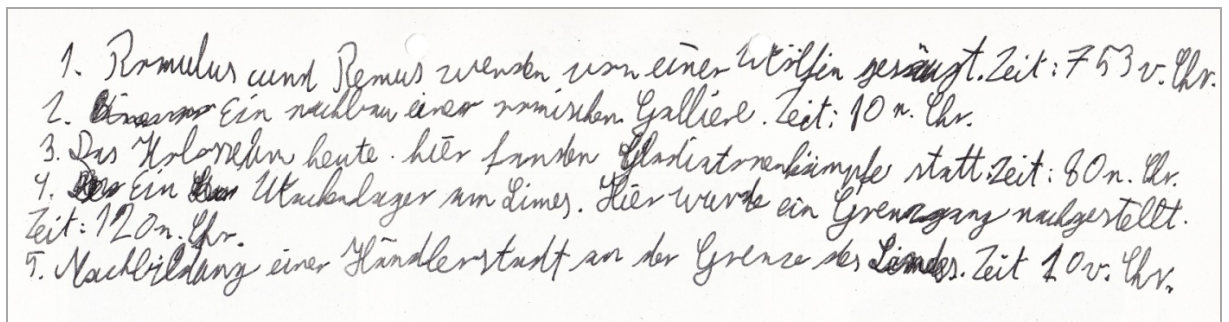 1. Romulus und Remus werden von einer Wölfin gesäugt. Zeit: 753 v. Chr.
2. Ein nachbau einer romischen Galliere. Zeit: 10 n. Chr.
3. Das Kolosseum heute. hier fanden Gladiatorenkämpfe statt. Zeit: 80 n. Chr.
4. Ein Wachenlager am Limes. Hier wurde ein Grenzgang nachgestellt.
Zeit: 120 n. Chr.
5. Nachbildung einer Händlerstadt an der Grenze des Limes. Zeit 10 v. Chr.